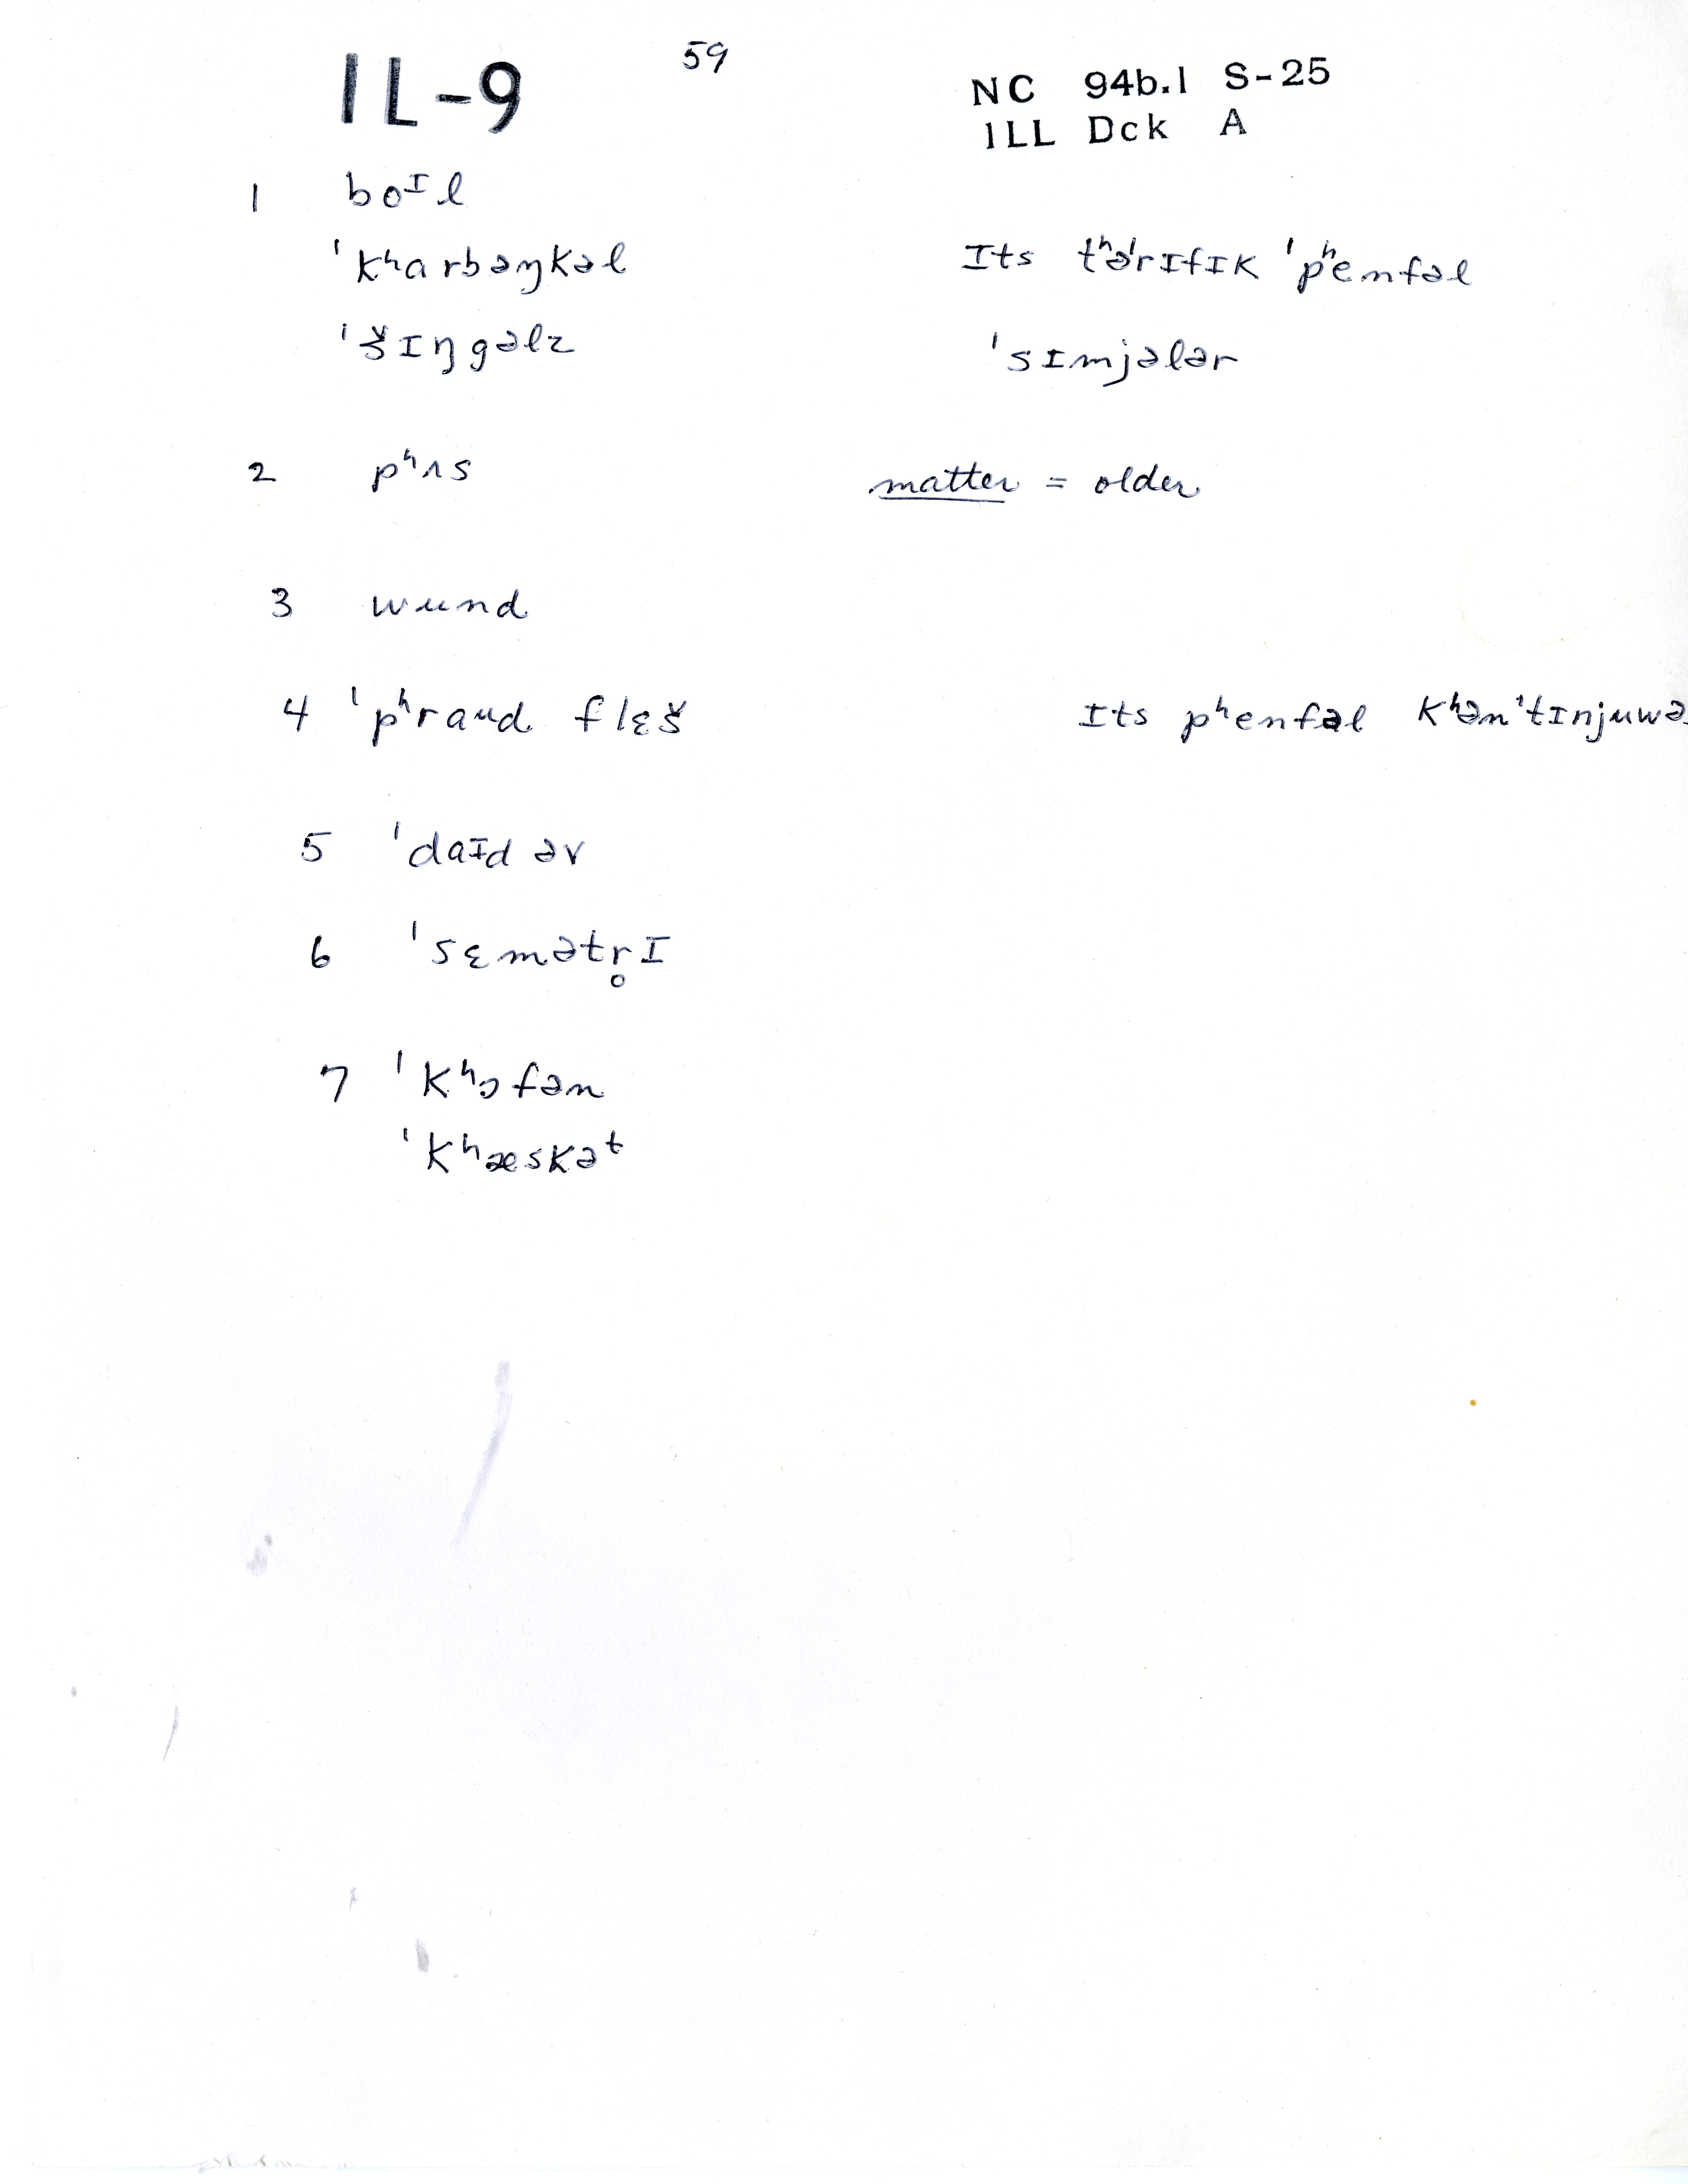 IL-9 59 NC 94b.1 S-25
ILL Dck A
1 boᴵl
ˈkʰarbəŋkəl Its tʰəˈrɪfɪk ˈpʰenfəl
ˈšɪŋgəlz ˈsɪmjələr
2 pʰʌs matter = older
3 wund
4 ˈpʰraud flɛš Its pʰenfəl kʰənˈtɪnjuwə
5 ˈdaɪd əv
6 ˈsɛmətr̥ɪ
7 ˈkʰɔfən
ˈkʰæskət